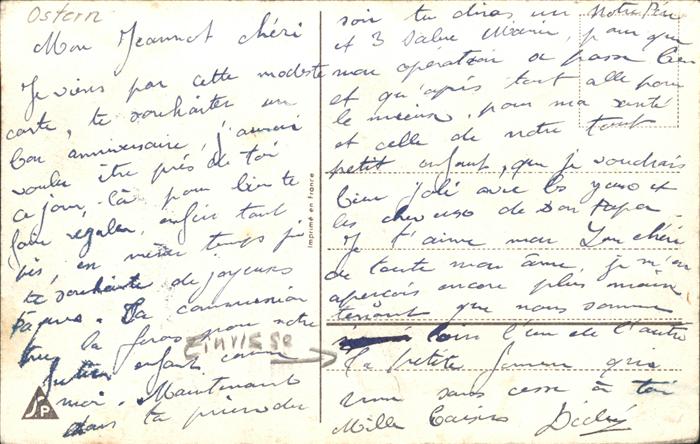 Ostern
Mon Jeannot chéri
Je viens par cette modeste
carte, te souhaiter un
bon anniversaire, j'aurais
voulu être près de toi
ce jour, là pour bien te
faire régaler, enfin tant
pis, en même temps je
te souhaite de joyeuses
Pâques. La communion
tu la feras pour notre
futur enfant comme
moi. Maintenant
dans ta prière du
soir tu diras un Notre Père
et 3 Salue Marie, pour que
mon opération se passe bien
et qu'après tout aille pour
le mieux, pour ma santé
et celle de notre tout
petit enfant, que je voudrais
bien joli avec les yeux et
les cheveux de son Papa.
Je t'aime mon Jean chéri
de toute mon âme, je m'en
aperçois encore plus maintenant
que nous sommes
loin l'un de l'autre
Ta petite femme qui
rêve sans cesse à toi
Mille baisers
Imprimé en France